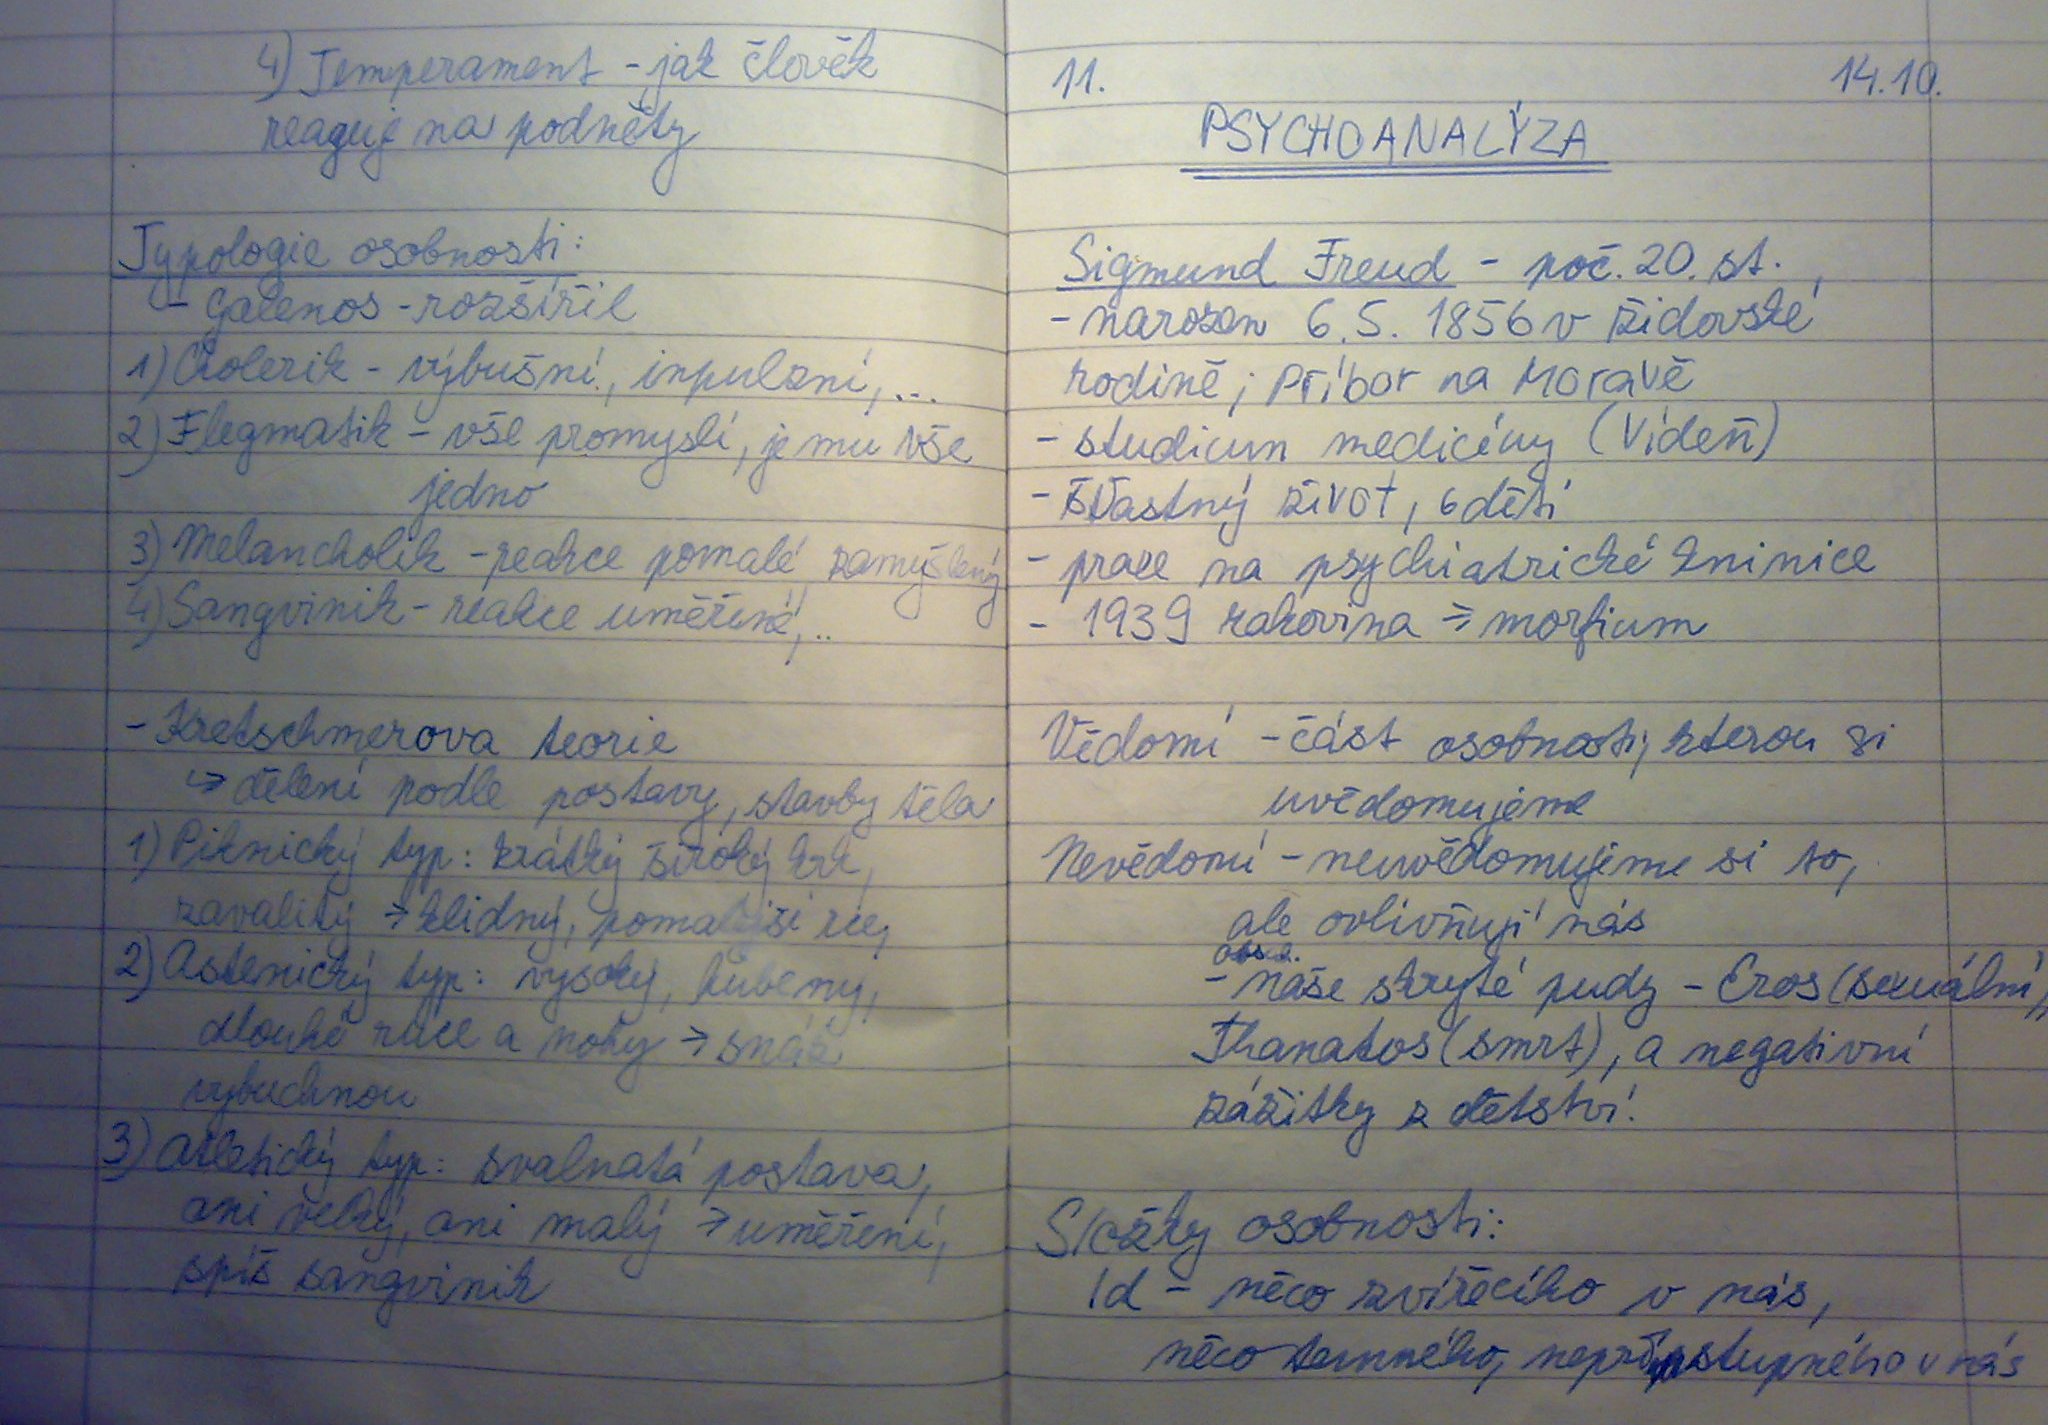 4) Temperament - jak člověk
reaguje na podněty
Typologie osobnosti:
- Galenos - rozšířil
1) Cholerik - výbušní, inpulzní, ...
2) Flegmatik - vše promyslí, je mu vše
jedno
3) Melancholik - reakce pomalé, zamyšlený
4) Sangvinik - reakce uměřené, ..
- Kretschmerova teorie
↳ dělení podle postavy, stavby těla
1) Piknický typ: krátký široký krk,
zavalitý → klidný, pomalejší
2) Astenický typ: vysoký, hubený,
dlouhé ruce a nohy → snáz
vybuchnou
3) Atletický typ: svalnatá postava,
ani velký, ani malý → uměření,
spíš sangvinik
11. 14.10.
PSYCHOANALÝZA
Sigmund Freud - poč. 20. st.
- narozen 6.5. 1856 v židovské
rodině; Příbor na Moravě
- studium medicíny (Vídeň)
- šťastný život, 6 dětí
- prace na psychiatrické kninice
- 1939 rakovina ⇒ morfium
Vědomí - část osobnosti, kterou si
uvědomujeme
Nevědomí - neuvědomujeme si to,
ale ovlivňují nás
- naše skryté pudy - Eros (sexuální),
Thanatos (smrt), a negativní
zážitky z dětství.
Složky osobnosti:
Id - něco zvířecího v nás,
něco temného, nepřístupného v nás